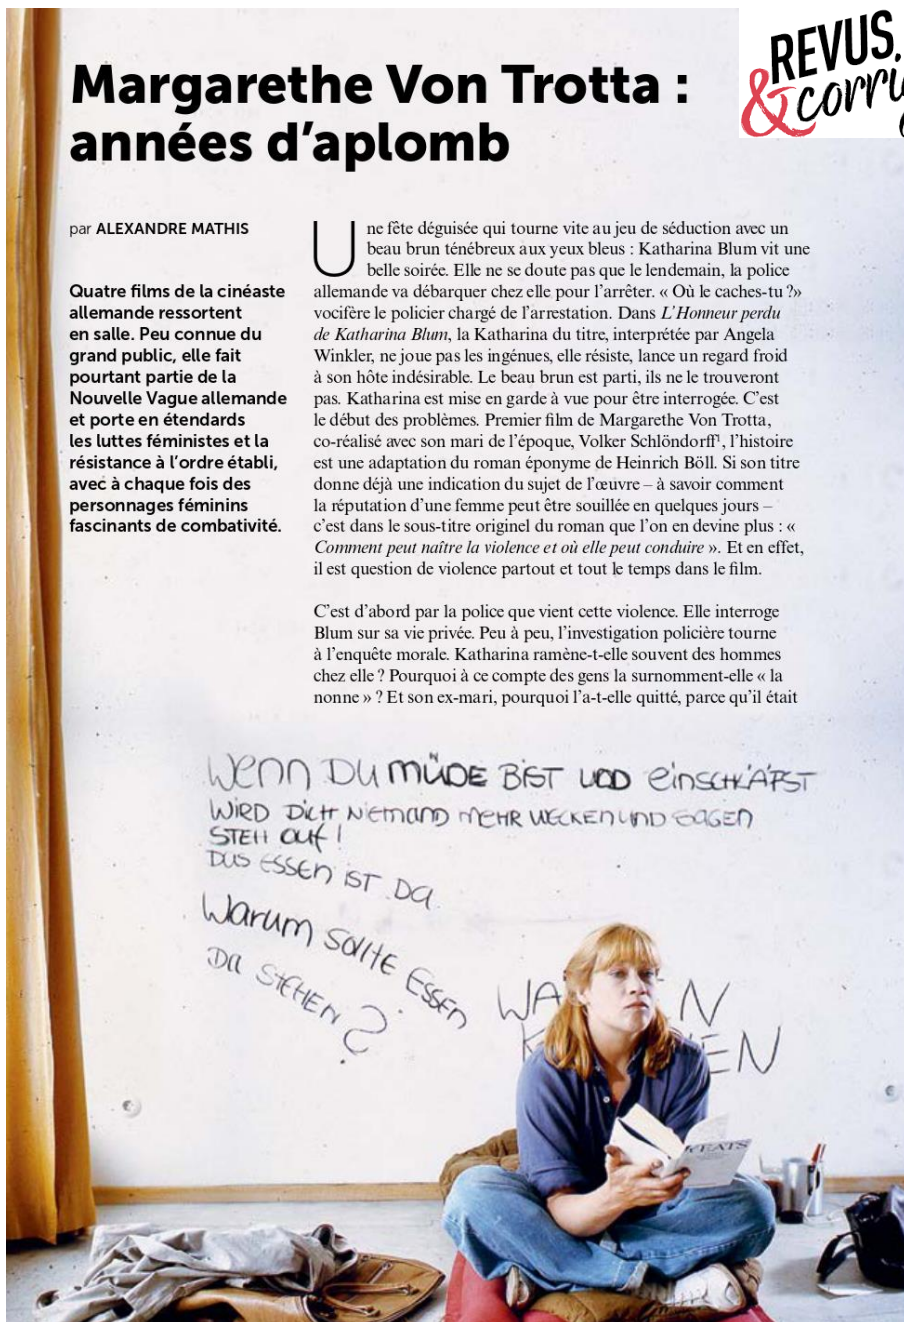 REVUS.
& corri
Margarethe Von Trotta :
années d’aplomb
par ALEXANDRE MATHIS
Quatre films de la cinéaste
allemande ressortent
en salle. Peu connue du
grand public, elle fait
pourtant partie de la
Nouvelle Vague allemande
et porte en étendards
les luttes féministes et la
résistance à l’ordre établi,
avec à chaque fois des
personnages féminins
fascinants de combativité.
Une fête déguisée qui tourne vite au jeu de séduction avec un
beau brun ténébreux aux yeux bleus : Katharina Blum vit une
belle soirée. Elle ne se doute pas que le lendemain, la police
allemande va débarquer chez elle pour l’arrêter. « Où le caches-tu ?»
vocifère le policier chargé de l’arrestation. Dans L’Honneur perdu
de Katharina Blum, la Katharina du titre, interprétée par Angela
Winkler, ne joue pas les ingénues, elle résiste, lance un regard froid
à son hôte indésirable. Le beau brun est parti, ils ne le trouveront
pas. Katharina est mise en garde à vue pour être interrogée. C’est
le début des problèmes. Premier film de Margarethe Von Trotta,
co-réalisé avec son mari de l’époque, Volker Schlöndorff¹, l’histoire
est une adaptation du roman éponyme de Heinrich Böll. Si son titre
donne déjà une indication du sujet de l’œuvre – à savoir comment
la réputation d’une femme peut être souillée en quelques jours –
c’est dans le sous-titre originel du roman que l’on en devine plus : «
Comment peut naître la violence et où elle peut conduire ». Et en effet,
il est question de violence partout et tout le temps dans le film.
C’est d’abord par la police que vient cette violence. Elle interroge
Blum sur sa vie privée. Peu à peu, l’investigation policière tourne
à l’enquête morale. Katharina ramène-t-elle souvent des hommes
chez elle ? Pourquoi à ce compte des gens la surnomment-elle « la
nonne » ? Et son ex-mari, pourquoi l’a-t-elle quitté, parce qu’il était
WENN DU MÜDE BIST UND EINSCHLÄFST
WIRD DICH NIEMAND MEHR WECKEN UND SAGEN
STEH AUF!
DAS ESSEN IST DA
WARUM SOLLTE ESSEN
DA STEHEN?
KEATS